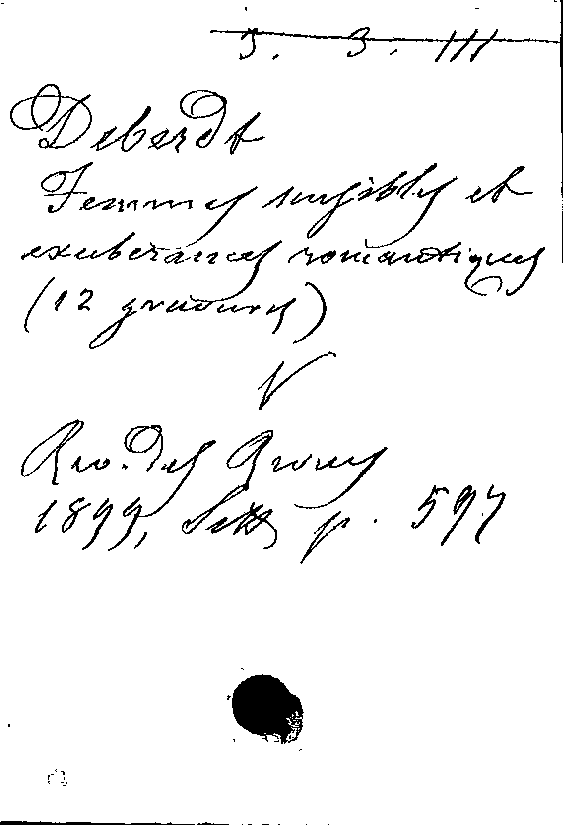 5. 3. III
Deberdt
Femmes sensibles et
exubérances romantiques
(12 gravures)
V
Rev. des Revues
1899, p. 597